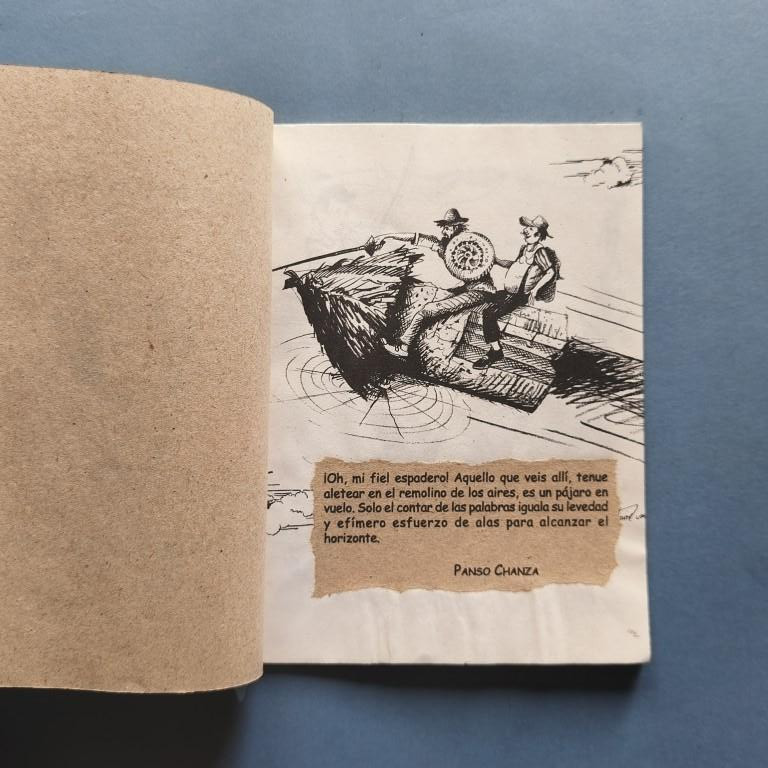 ¡Oh, mi fiel espadero! Aquello que veis allí, tenue
aletear en el remolino de los aires, es un pájaro en
vuelo. Solo el contar de las palabras iguala su levedad
y efímero esfuerzo de alas para alcanzar el
horizonte.
PANSO CHANZA